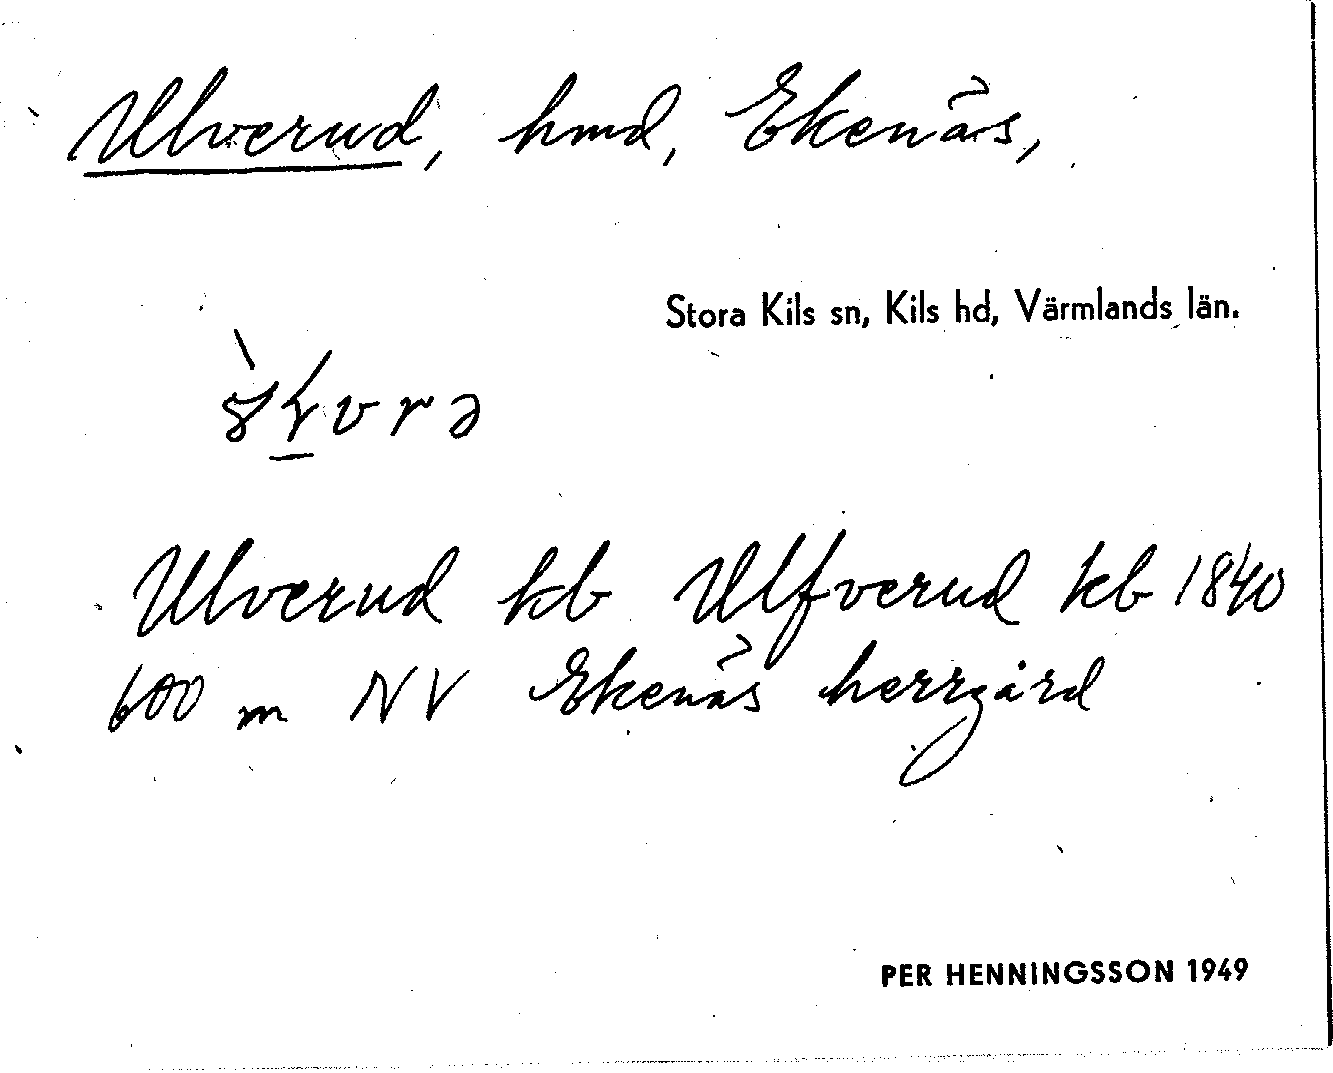 Ulverud, hmd, Ekenäs,
Stora Kils sn, Kils hd, Värmlands län.
Ulverud kb Ulfverud kb 1840
600 m NV Ekenäs herrgård
PER HENNINGSSON 1949